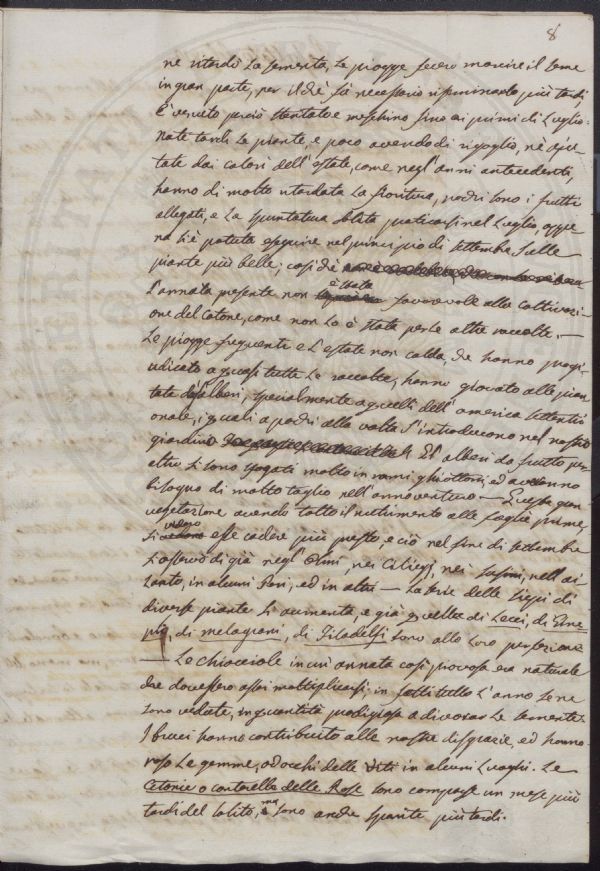 8
ne ritardò la sementa, le piogge fecero marcire il seme
in gran parte, per il chè fù necessario riseminarlo più tardi,
È venuto perciò stentato e meschino sino ai primi di Luglio:
nate tardi le piante, e poco avendo di rigoglio, nè ajutate
dai calori dell'estate, come negl'anni antecedenti,
hanno di molto ritardata la fioritura, pochi sono i frutti
allegati, e la spuntatura solita praticarsi nel Luglio, appe
na si è potuta eseguire nel principio di settembre sulle
piante più belle; cosí chè
è stata
L'annata presente non favorevole alla coltivazi
one del cotone, come non lo è stata per le altre raccolte. —
Le piogge frequenti e l'estate non calda, che hanno pregi
udicato a quasi tutte le raccolte, hanno giovato alle pian
tate d'alberi, specialmente a quelli dell'america settentri
onale, i quali a pochi alla volta s'introducono nel nostro
giardino Gl'alberi da frutto per
altro si sono sfogati molto in rami ghiottoni, ed avranno
bisogno di molto taglio nell'anno venturo — Questa gran
vegetazione avendo tolto il nutrimento alle foglie prime,
si videro esse cadere più presto, e ciò nel fine di settembre
si osservò di già negl'Olmi, nei Ciliegj, nei Susini, nell'ai
lanto, in alcuni Peri, ed in altri — La serie delle siepi di
diverse piante si aumenta, e già quelle di Lecci, di Gine
pio, di melagrani, di Filadelfi sono alla loro perfezione
— Le chiocciole in un annata così piovosa era naturale
che dovessero assai moltiplicarsi; in fatti tutto l'anno se ne
sono vedute, in quantità prodigiosa a divorar le semente.
I bruci hanno contribuito alle nostre disgrazie, ed hanno
roso le gemme, od occhi delle Viti in alcuni luoghi. Le
Cetonie o cantarelle delle Rose sono comparse un mese più
tardi del solito, ma sono anche sparite più tardi.